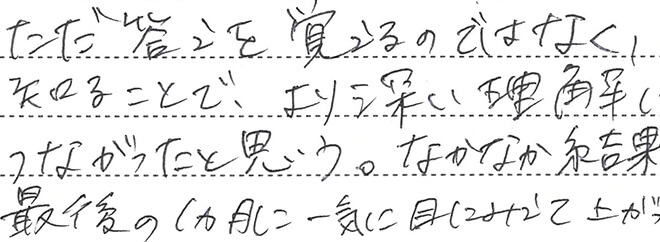 ただ答えを覚えるのではなく,
知ることで、より深い理解に
つながったと思う。なかなか結果
最後の1ヵ月に一気に目に見えて上がっ